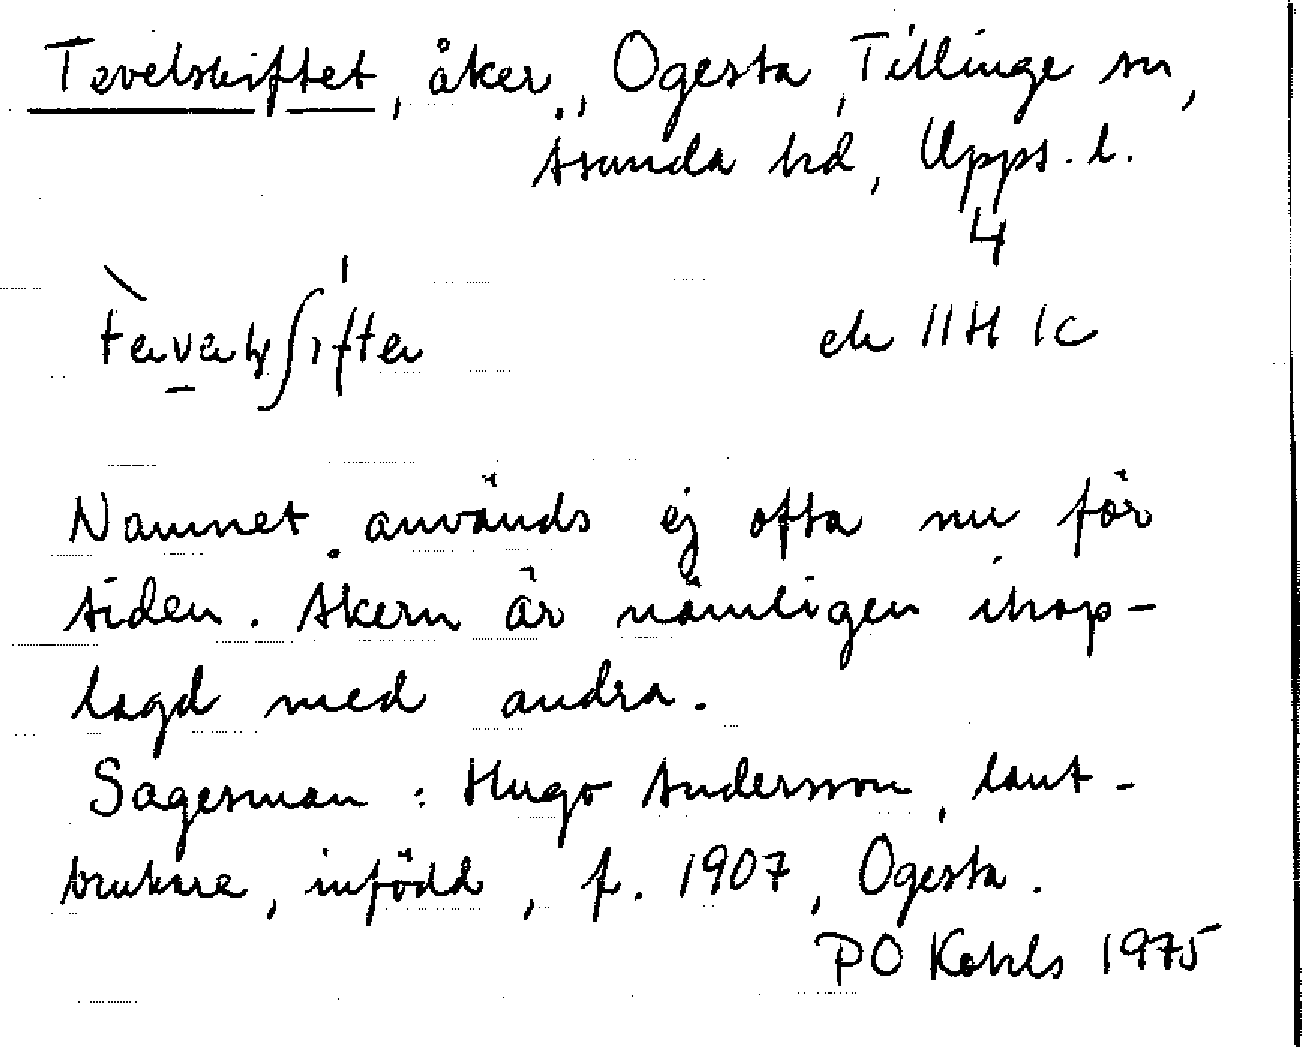 Tevelskiftet, åker, Ogesta, Tillinge sn,
Åsunda hd, Upps. l.
4
ek 11H 1c
Namnet används ej ofta nu för
tiden. Åkern är nämligen ihop-
lagd med andra.
Sagesman: Hugo Andersson, lant-
brukare, infödd, f. 1907, Ogesta.
PO Kohls 1975